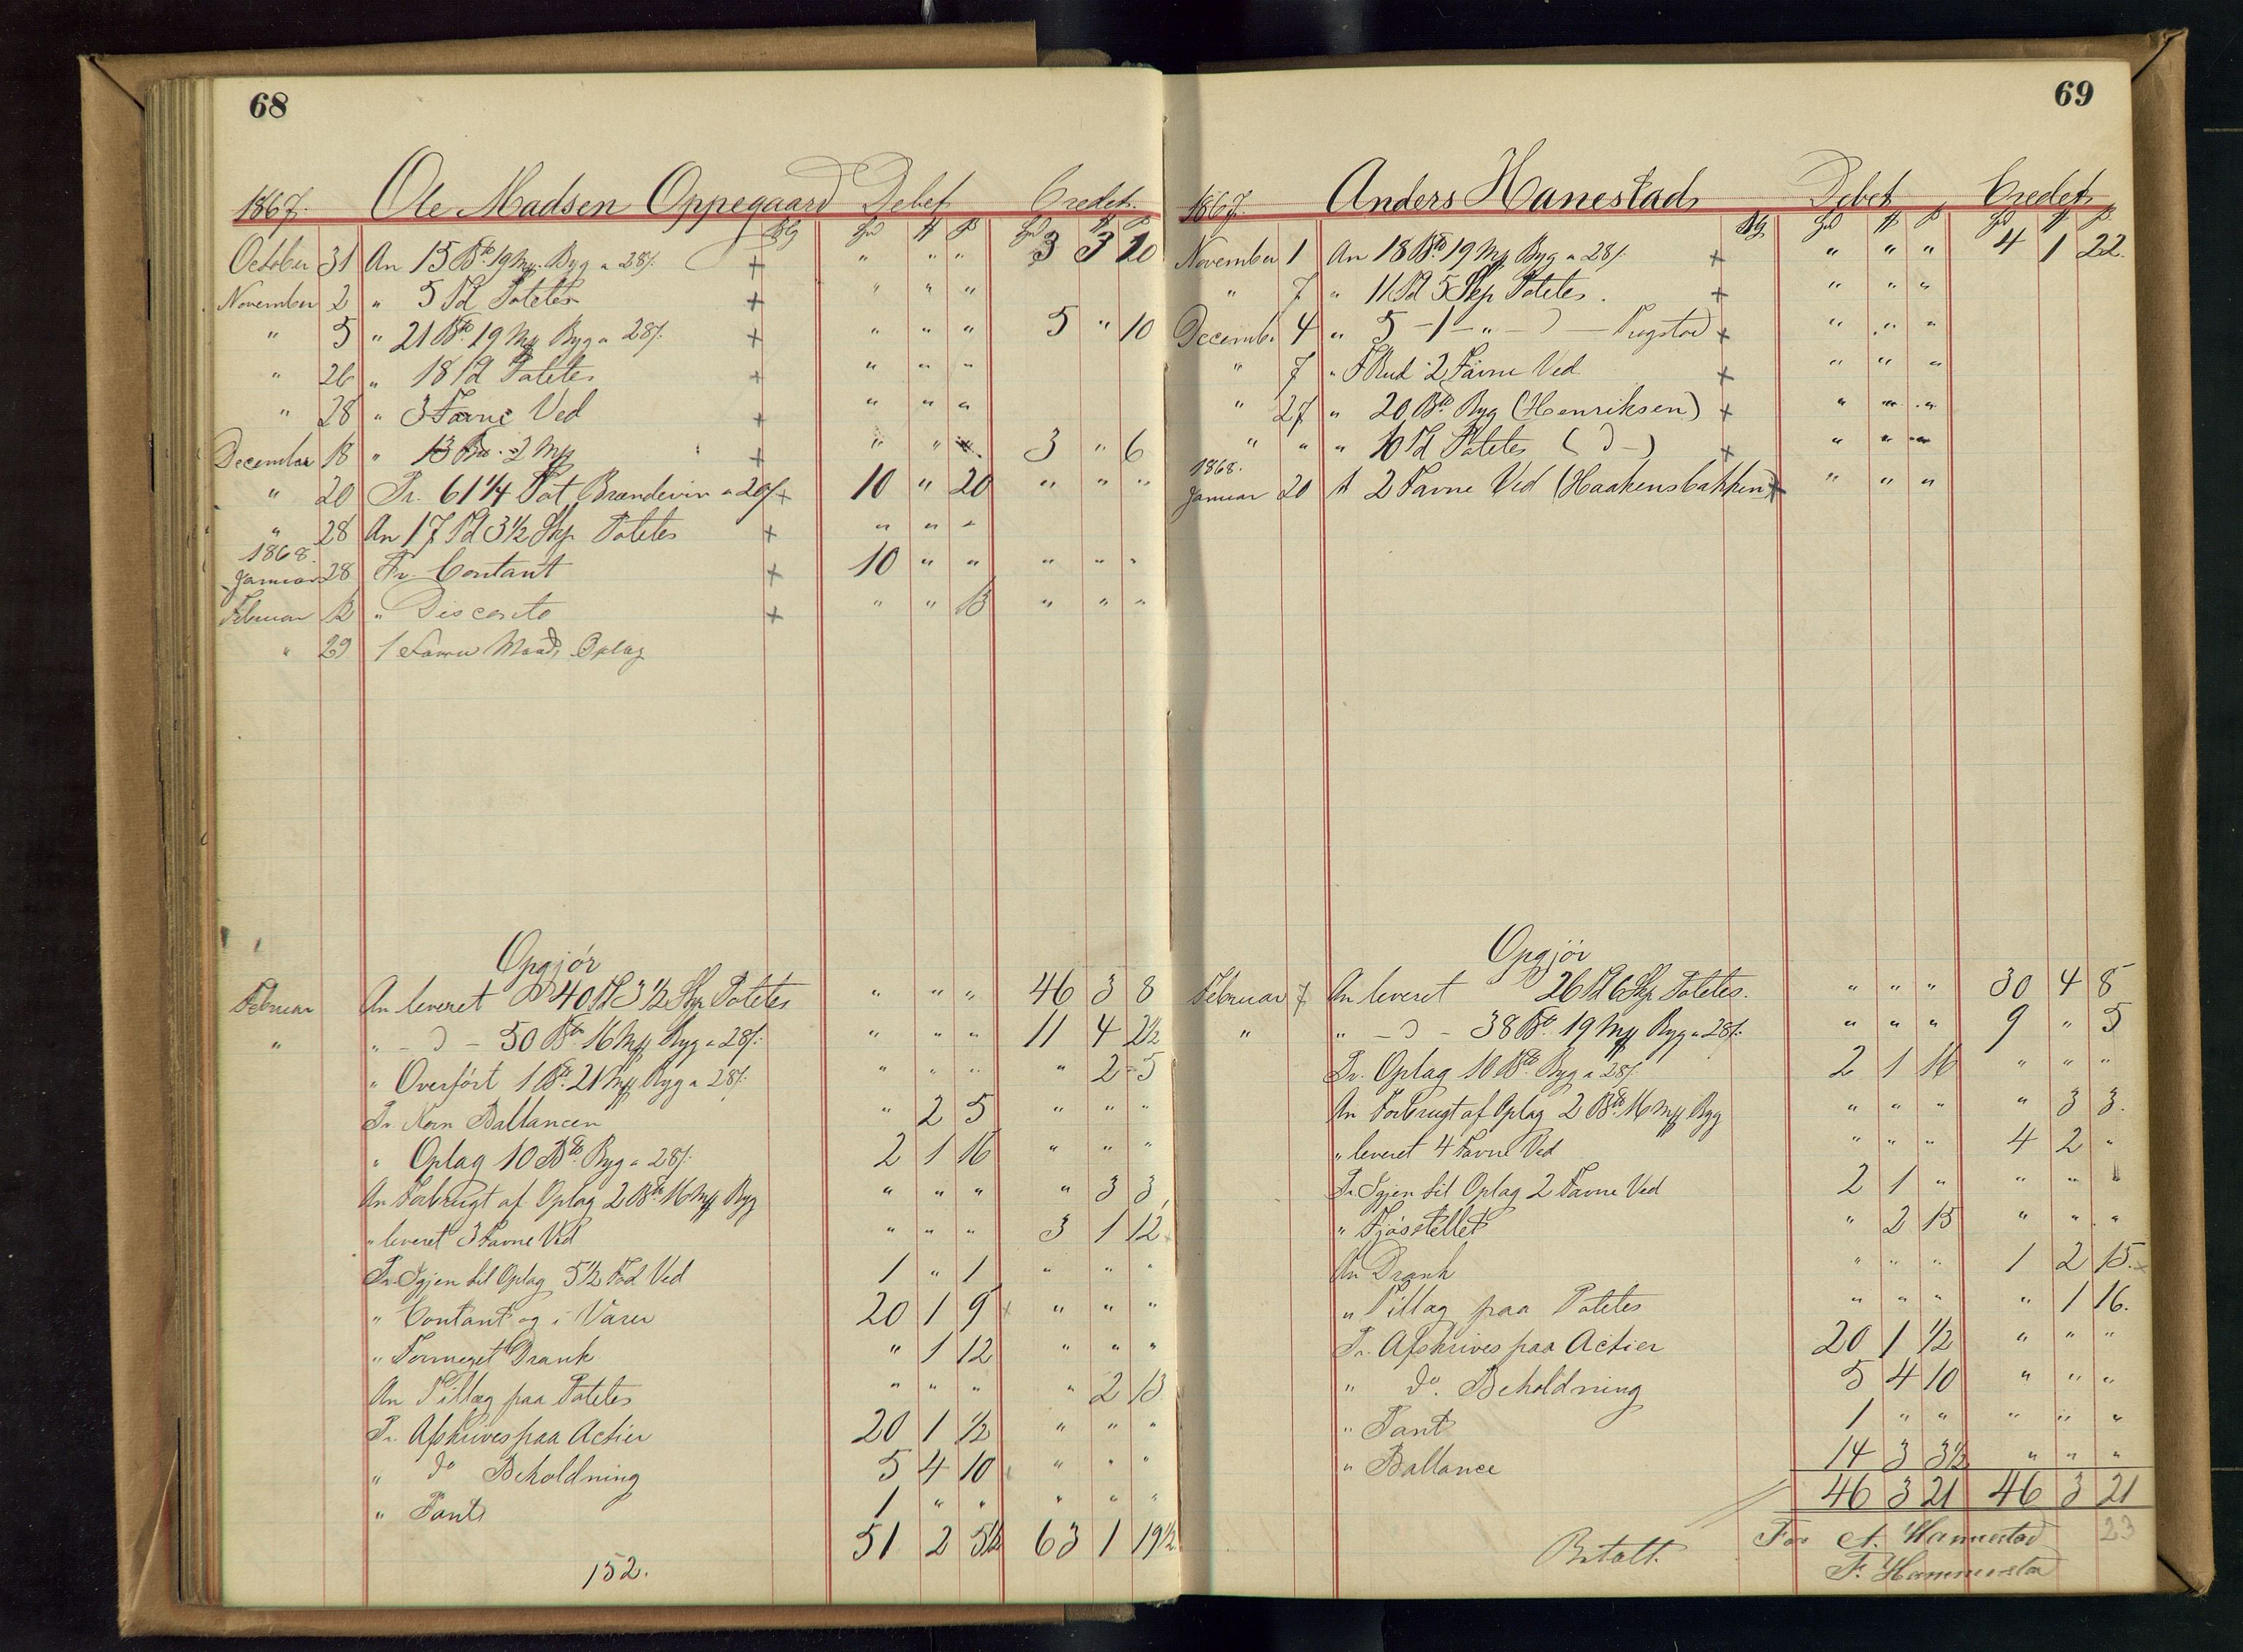 68
1867. Ole Madsen Oppegaard Debet Credet.
October 31 An 15 Bt. 19 Mrk. Byg a 28/. + " " " 3 3 20
November 2 " 5 Td Potetes + " " "
" 5 " 21 Bt. 19 Mrk Byg a 28/. + " " " 5 " 10
" 26 " 18 Td Potetes + " " "
" 28 " 3 Favne Ved + " " "
December 18 " 13 Bt. 2 Mrk + " " " 3 " 6
" 20 Pr. 61 1/4 Pot Brændevin a 20/ + 10 " 20 " " "
" 28 An 17 Td 3 1/2 Skp Potetes + " " "
1868.
Januar 28 Pr. Contant + 10 " " " " "
Februar 12 " Disconto + " " 13 " " "
" 29 1 Favn Oplag
Opgjör
Februar An leveret 40 Td 3 1/2 Skp Potetes " " " 46 3 8
" " - D - 50 Bt. 16 Mrk Byg a 28/. " " " 11 4 2 1/2
" Overfört 1 Bt. 21 Mrk Byg a 28/. " " " " 2 5
Pr. Korn Ballancen " 2 5 " " "
" Oplag 10 Bt. Byg a 28/. 2 1 16 " " "
An Forbrugt af Oplag 2 Bt. 16 Mrk Byg " " " " 3 3
" leveret 3 Favne Ved " " " 3 1 12
Pr. Igjen til Oplag 5 1/2 Fod Ved 1 " 1 " " "
" Contant og i Varer 20 1 9 " " "
" Formeget Drank " 1 12 " " "
An Tillæg paa Potetes " " " " 2 13
Pr. Afskrives paa Actier 20 1 1/2 " " "
" do Beholdning 5 4 10 " " "
" Pant 1 " " " " "
51 2 5 1/2 63 1 19 1/2
152.
69
1867. Anders Hanestad Debet Credet
November 1 An 18 Bt. 19 Mrk Byg a 28/. + " " " 4 1 22.
" 7 " 11 Td 5 Skp Potetes. + " " "
December 4 " 5 - 1 - " - D - + " " "
" 7 " 2 Favne Ved + " " "
" 27 " 20 Bt. Byg (Henriksen) + " " "
" " " 10 Td Potetes ( D - ) + " " "
1868.
Januar 20 A 2 Favne Ved (Haakensbakken) + " " "
Opgjör
Februar 7 An leveret 26 Td 6 Skp Potetes. " " " 30 4 8
" " - D - 38 Bt. 19 Mrk Byg a 28/. " " " 9 " 5
Pr. Oplag 10 Bt. Byg a 28/. 2 1 16 " " "
An Forbrugt af Oplag 2 Bt. 16 Mrk Byg " " " " 3 3.
" leveret 4 Favne Ved " " " 4 2 "
Pr. Igjen til Oplag 2 Favne Ved 2 1 " " " "
" Fjösstellet " 2 15 " " "
An Drank " " " 1 2 15.
" Tillæg paa Potetes " " " " 1 16.
Pr. Afskrives paa Actier 20 1 1/2 " " "
" do. Beholdning 5 4 10 " " "
" Pant 1 " " " " "
" Ballance 14 3 3 1/2 " " "
46 3 21 46 3 21
Betalt. For A. Hannestad 23
F. Hannestad